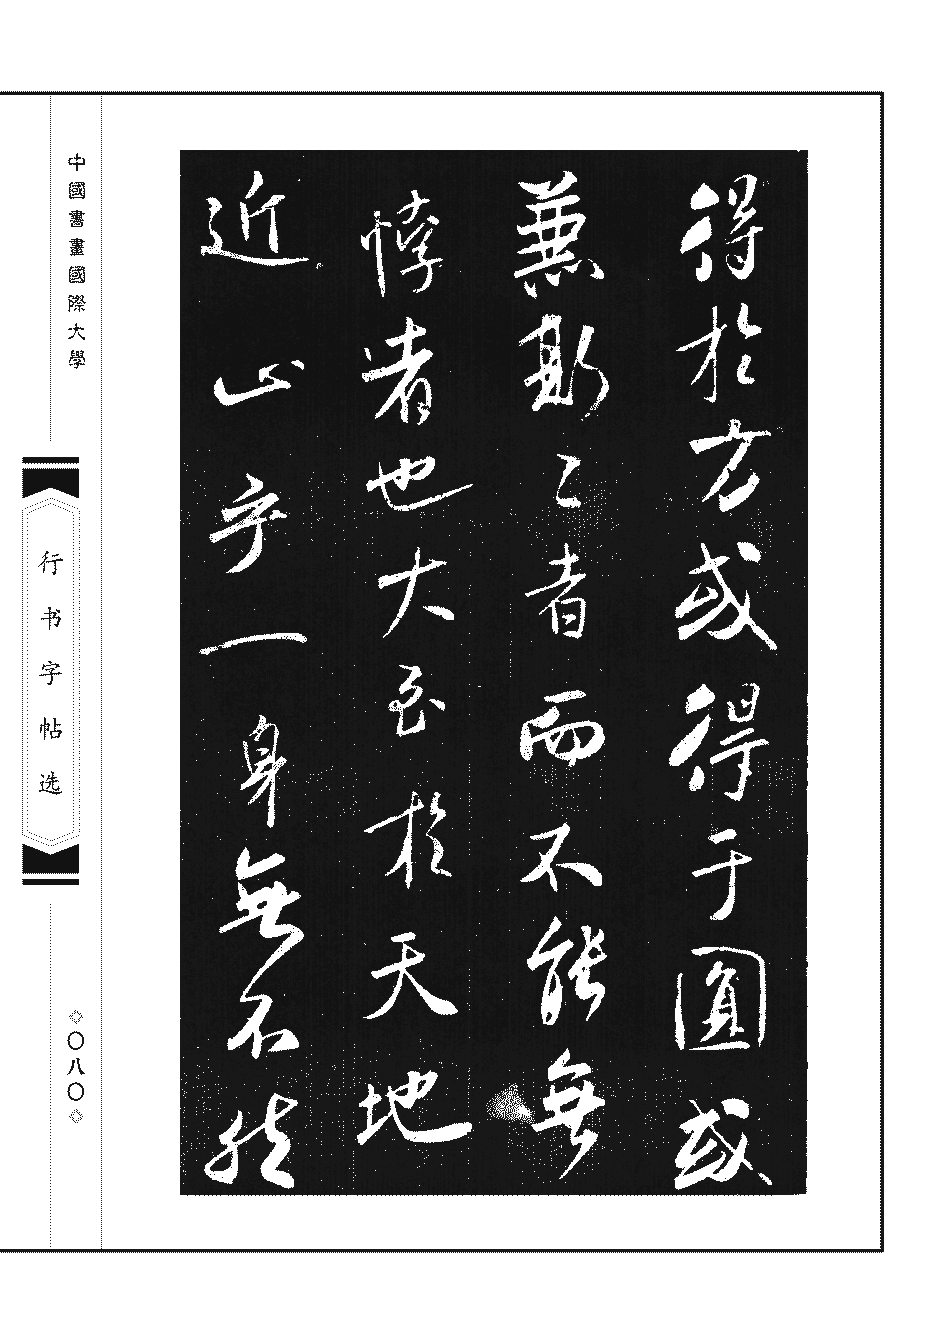 得於方或得于圓或
蕪斯二者而不能無
悖者也大至於天地
近止乎一身無不然
中國書畫國際大學
行书字帖选
〇八〇